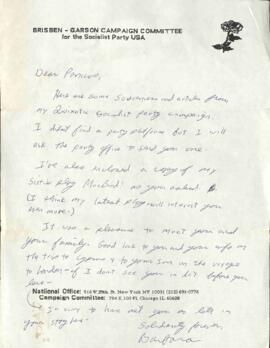 BRISBEN - GARSON CAMPAIGN COMMITTEE
for the Socialist Party USA
Dear
Here are some souvenirs and articles from
my Quixotic Socialist Party campaign.
I didn't find a party platform but I will
ask the party office to send you one.
I've also enclosed a copy of my
play MacBird! as you asked.
(I think my latest play will interest you
even more.)
It was a pleasure to meet you and
your family. Good luck to you and your wife on
the trip to Cyprus & to your son in the
to London - if I don't see you in
National Office: 516 W 25th St. New York NY 10001 (212) 691-0776
Campaign Committee: Chicago IL
to have met you so late in
your stay here -
Solidarity forever,
Barbara